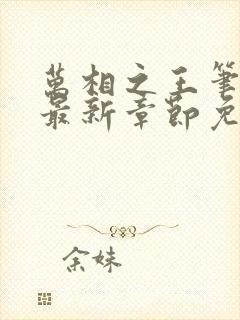 萬相之王筆
最新章節免
余妹